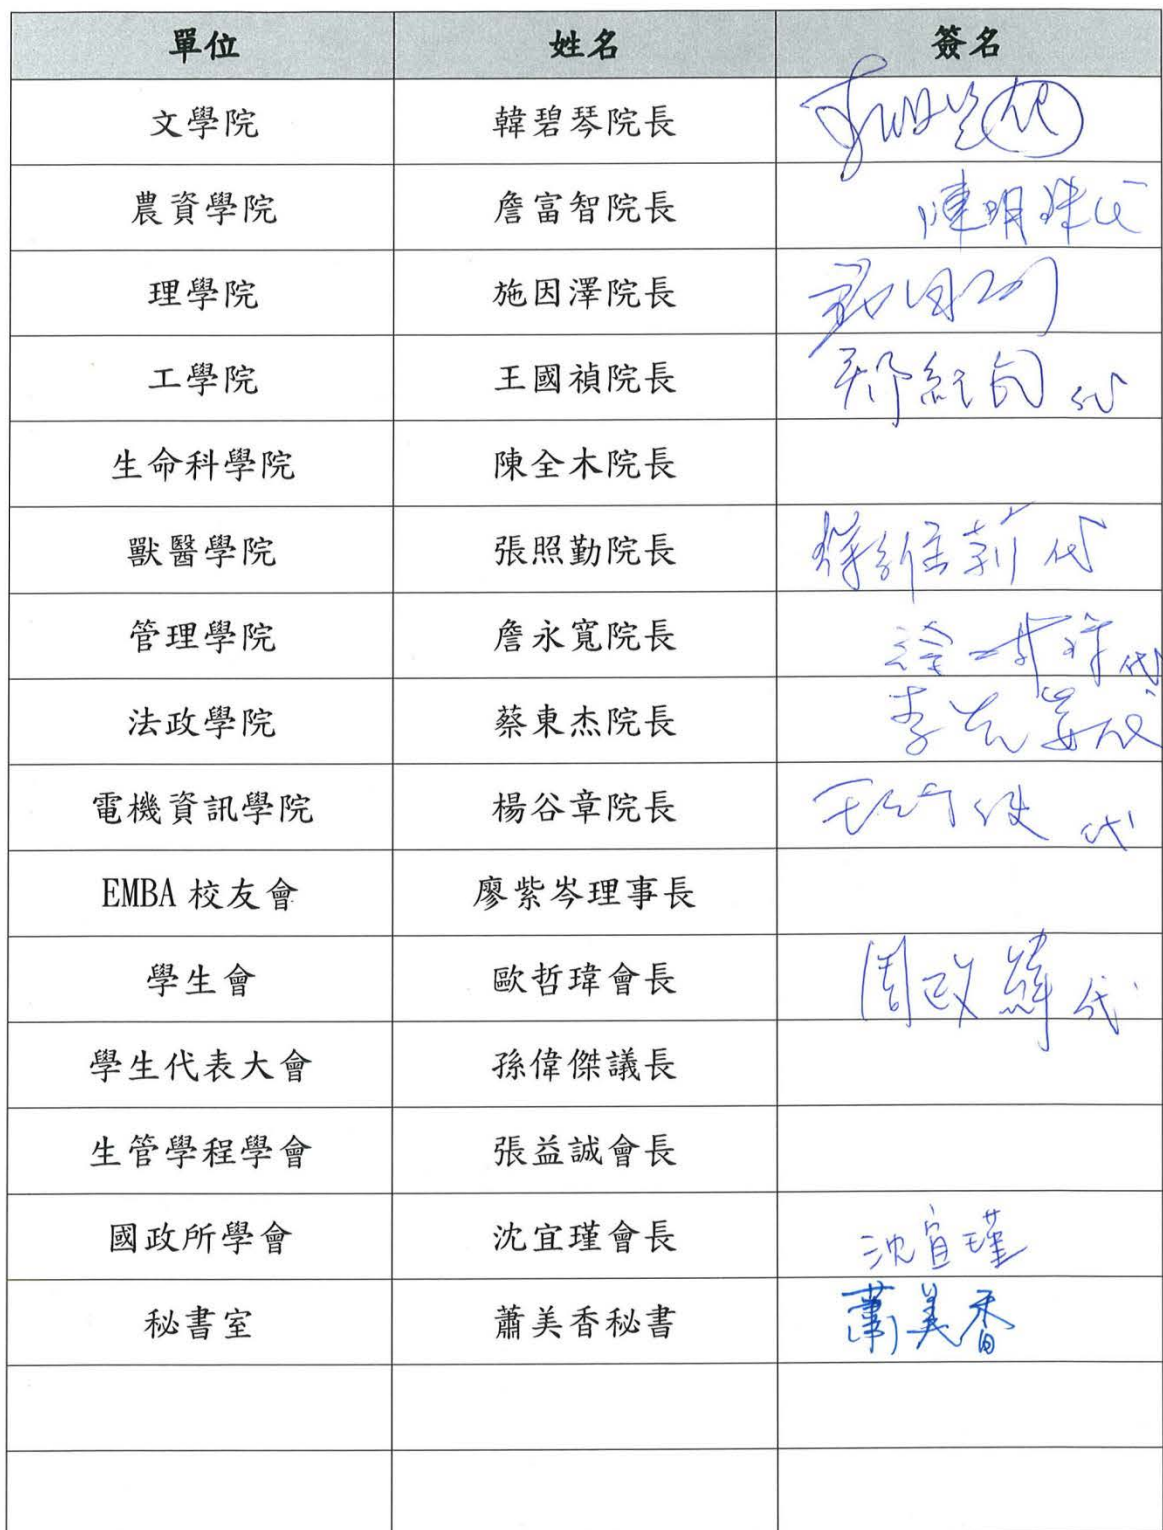 單位 姓名 簽名
文學院 韓碧琴院長
農資學院 詹富智院長 陳明珠代
理學院 施因澤院長
工學院 王國禎院長 代
生命科學院 陳全木院長
獸醫學院 張照勤院長 代
管理學院 詹永寬院長 代
法政學院 蔡東杰院長 代
電機資訊學院 楊谷章院長 代
EMBA 校友會 廖紫岑理事長
學生會 歐哲瑋會長 周政緯代
學生代表大會 孫偉傑議長
生管學程學會 張益誠會長
國政所學會 沈宜瑾會長 沈宜瑾
秘書室 蕭美香秘書 蕭美香